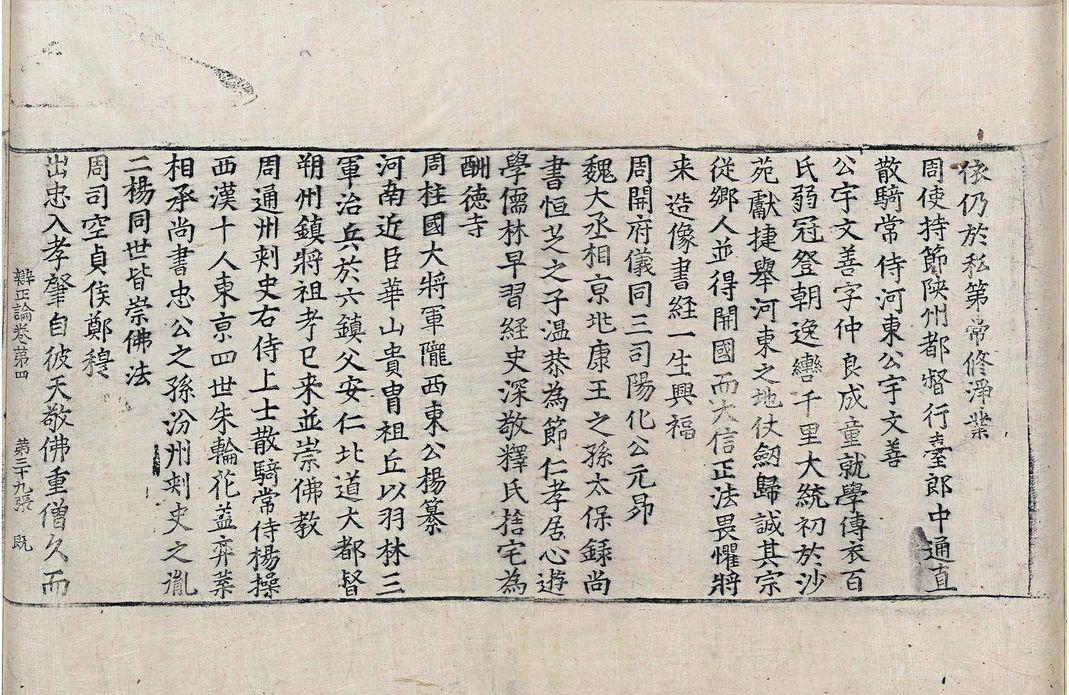 依仍於私第常修淨業
周使持節陝州都督行臺郎中通直
散騎常侍河東公宇文善
公宇文善字仲良成童就學傳衣百
氏弱冠登朝逸轡千里大統初於沙
苑獻捷舉河東之地仗劒歸誠其宗
從鄉人並得開國而大信正法畏懼將
来造像書経一生興福
周開府儀同三司陽化公元昂
魏大丞相京兆康王之孫太保録尚
書恒芝之子温恭為節仁孝居心遊
學儒林早習経史深敬釋氏捨宅為
酬德寺
周柱國大將軍隴西東公楊纂
河南近臣華山貴胄祖丘以羽林三
軍治兵於六鎮父安仁北道大都督
朔州鎮將祖考已来並崇佛教
周通州刺史右侍上士散騎常侍楊操
西漢十人東京四世朱輪花盖弈葉
相承尚書忠公之孫汾州刺史之胤
二楊同世皆崇佛法
周司空貞侯鄭穆
出忠入孝肇自彼天敬佛重僧久而
辯正論卷第四 第三十九張 既